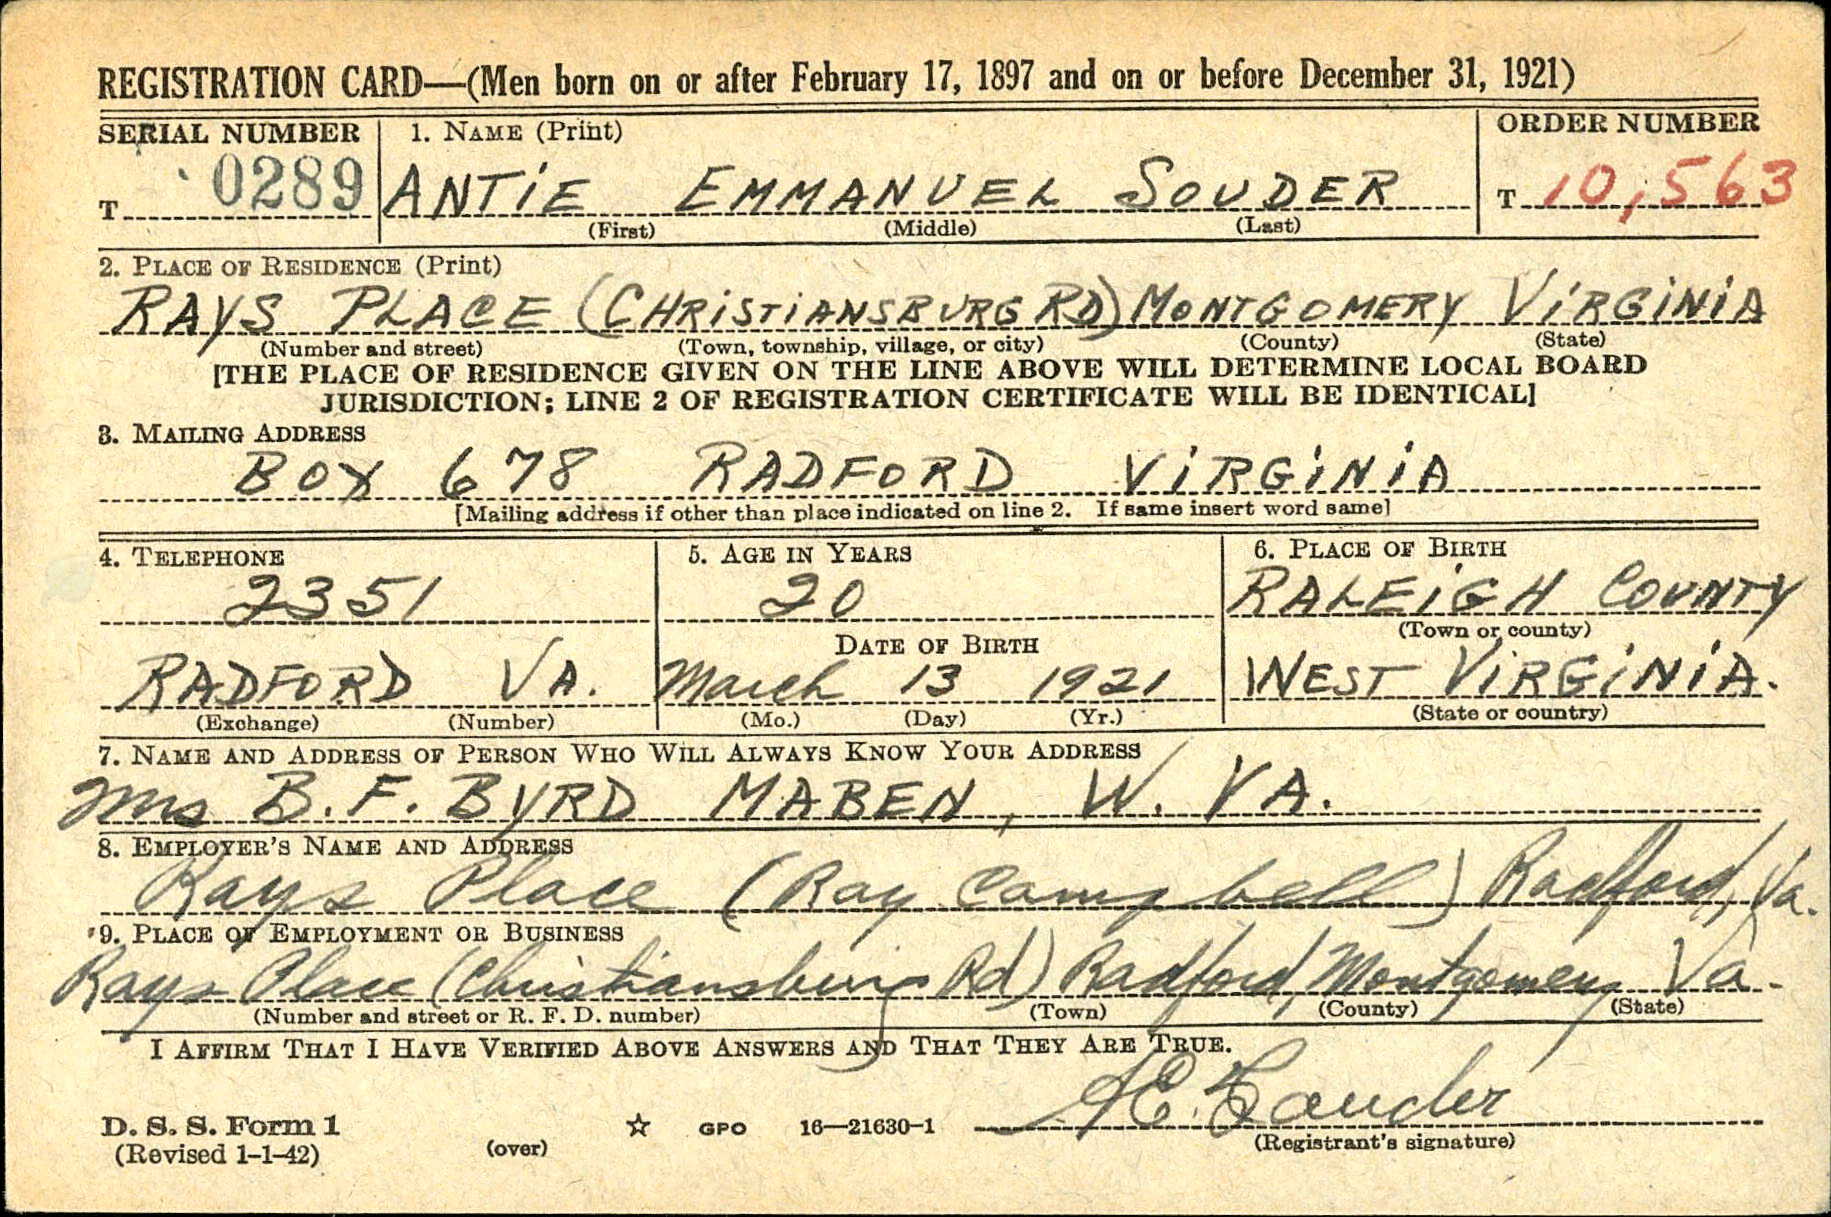 REGISTRATION CARD—(Men born on or after February 17, 1897 and on or before December 31, 1921)
SERIAL NUMBER 1. NAME (Print) ORDER NUMBER
T 0289 ANTiE EMMANUEL SOUDER T 10,563
(First) (Middle) (Last)
2. PLACE OF RESIDENCE (Print)
RAYS PLACE (CHRiSTiANSBURG RD) MONTGOMERY ViRGiNiA
(Number and street) (Town, township, village, or city) (County) (State)
[THE PLACE OF RESIDENCE GIVEN ON THE LINE ABOVE WILL DETERMINE LOCAL BOARD
JURISDICTION; LINE 2 OF REGISTRATION CERTIFICATE WILL BE IDENTICAL]
3. MAILING ADDRESS
BOX 678 RADFORD ViRGiNiA
[Mailing address if other than place indicated on line 2. If same insert word same]
4. TELEPHONE 5. AGE IN YEARS 6. PLACE OF BIRTH
2351 20 RALEiGH COUNTY
DATE OF BIRTH (Town or county)
RADFORD VA. March 13 1921 WEST ViRGiNiA.
(Exchange) (Number) (Mo.) (Day) (Yr.) (State or country)
7. NAME AND ADDRESS OF PERSON WHO WILL ALWAYS KNOW YOUR ADDRESS
Mrs B.F. BYRD MABEN, W. VA.
8. EMPLOYER'S NAME AND ADDRESS
Rays Place (Ray Campbell) Radford, Va.
9. PLACE OF EMPLOYMENT OR BUSINESS
Rays Place (Christiansburg Rd) Radford, Montgomery Va.
(Number and street or R. F. D. number) (Town) (County) (State)
I AFFIRM THAT I HAVE VERIFIED ABOVE ANSWERS AND THAT THEY ARE TRUE.
A E. Souder
D. S. S. Form 1
(Revised 1-1-42) (over) ☆ GPO 16—21630-1 (Registrant's signature)